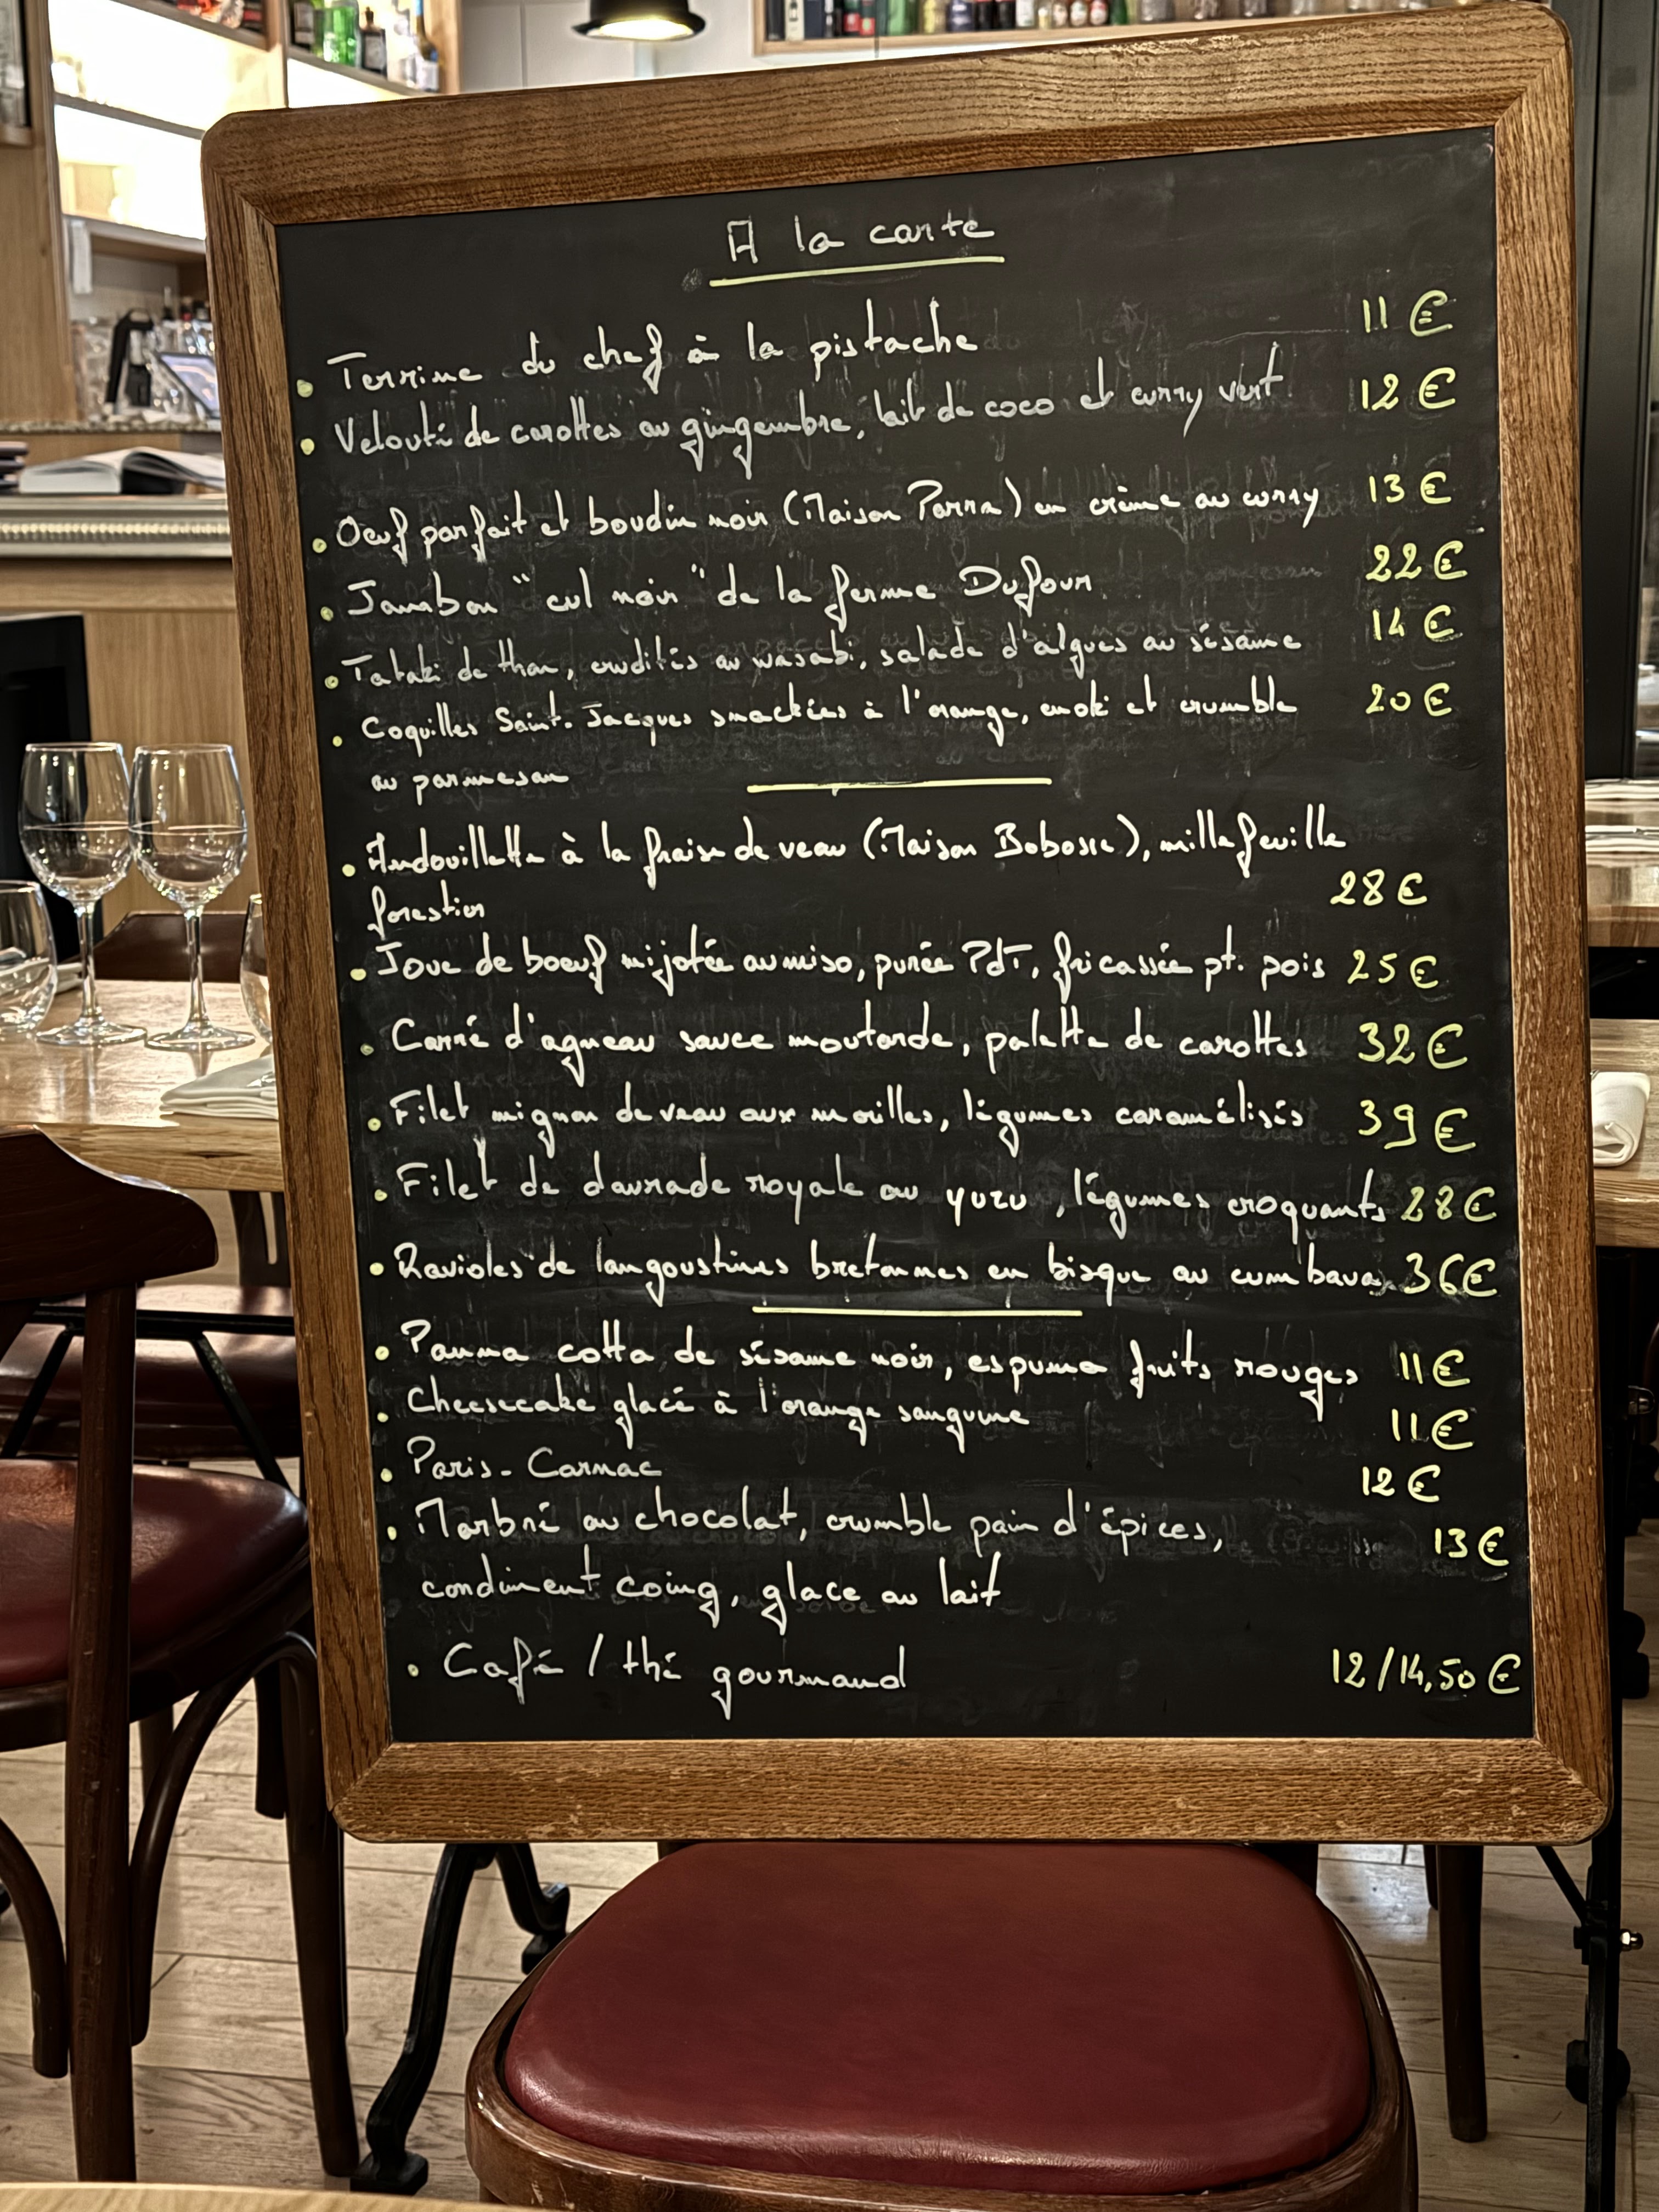 A la carte
• Terrine du chef à la pistache 11 €
• Velouté de carottes au gingembre, lait de coco et curry vert 12 €
• Oeuf parfait et boudin noir (Maison Parra) en crème au curry 13 €
• Jambon "cul noir" de la ferme Dufour 22 €
• Tataki de thon, crudités au wasabi, salade d'algues au sésame 14 €
• Coquilles Saint-Jacques snackées à l'orange, enoki et crumble 20 €
au parmesan
• Andouillette à la fraise de veau (Maison Bobosse), millefeuille
forestier 28 €
• Joue de boeuf mijotée au miso, purée PdT, fricassée pt. pois 25 €
• Carré d'agneau sauce moutarde, palette de carottes 32 €
• Filet mignon de veau aux morilles, légumes caramélisés 39 €
• Filet de daurade royale au yuzu, légumes croquants 28 €
• Ravioles de langoustines bretonnes en bisque au cumbava 36 €
• Panna cotta de sésame noir, espuma fruits rouges 11 €
• Cheesecake glacé à l'orange sanguine 11 €
• Paris-Carnac 12 €
• Marbré au chocolat, crumble pain d'épices, 13 €
condiment coing, glace au lait
• Café / thé gourmand 12/14,50 €